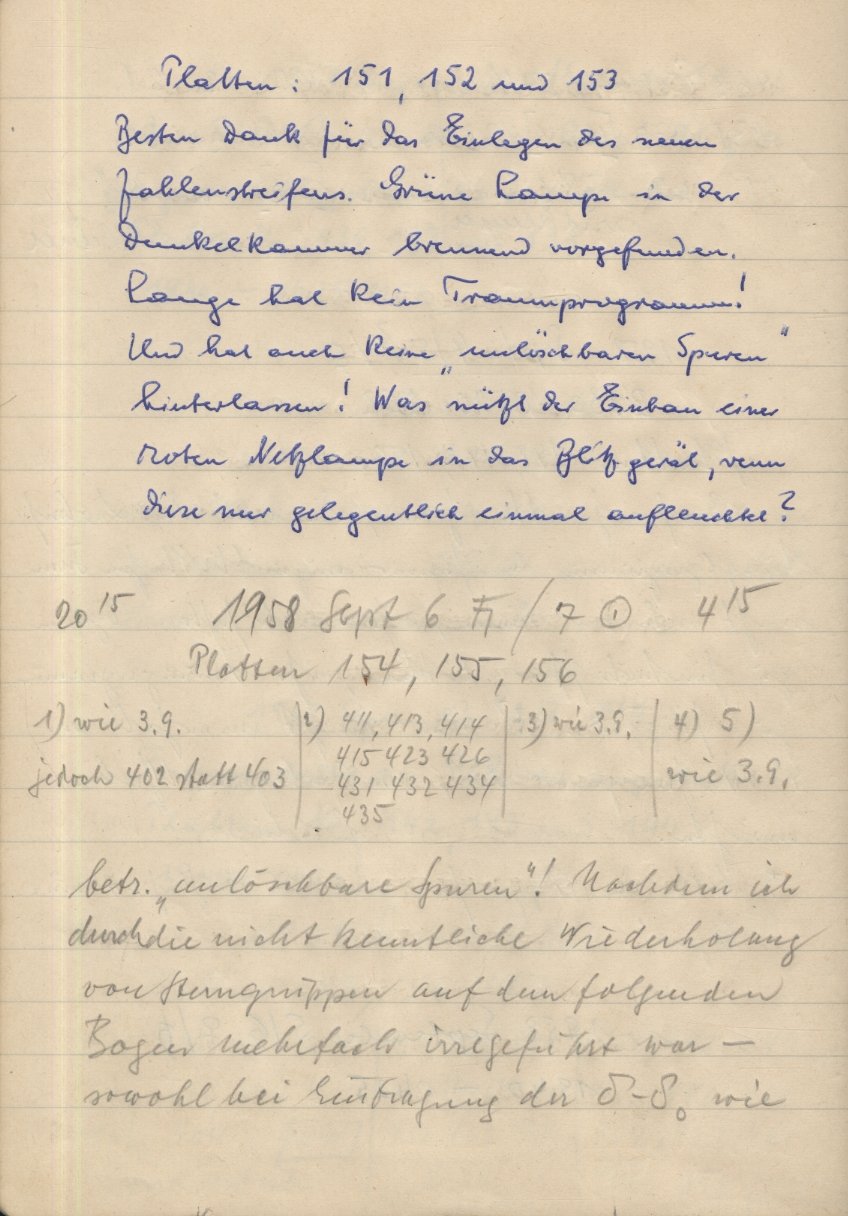 Platten: 151, 152 und 153
Besten Dank für das Einlegen des neuen
Zahlenstreifens. Grüne Lampe in der
Dunkelkammer brennend vorgefunden.
Lange hat kein Traumprogramm!
Und hat auch keine „unlöschbaren Spuren“
hinterlassen! Was nützt der Einbau einer
roten Netzlampe in das Blitzgerät, wenn
diese nur gelegentlich einmal aufleuchtet?
20 15 1958 Sept 6 ♄ / 7 ☉ 4 15
Platten 154, 155, 156
1) wie 3.9. | 2) 411, 413, 414 | 3) wie 3.9. | 4) 5)
jedoch 402 statt 403 | 415 423 426 | wie 3.9.
431 432 434
435
betr. „unlöschbare Spuren“! Nachdem ich
durch die nicht kenntliche Wiederholung
von Sterngruppen auf dem folgenden
Bogen mehrfach irregeführt war —
sowohl bei Eintragung der δ-δ₀ wie